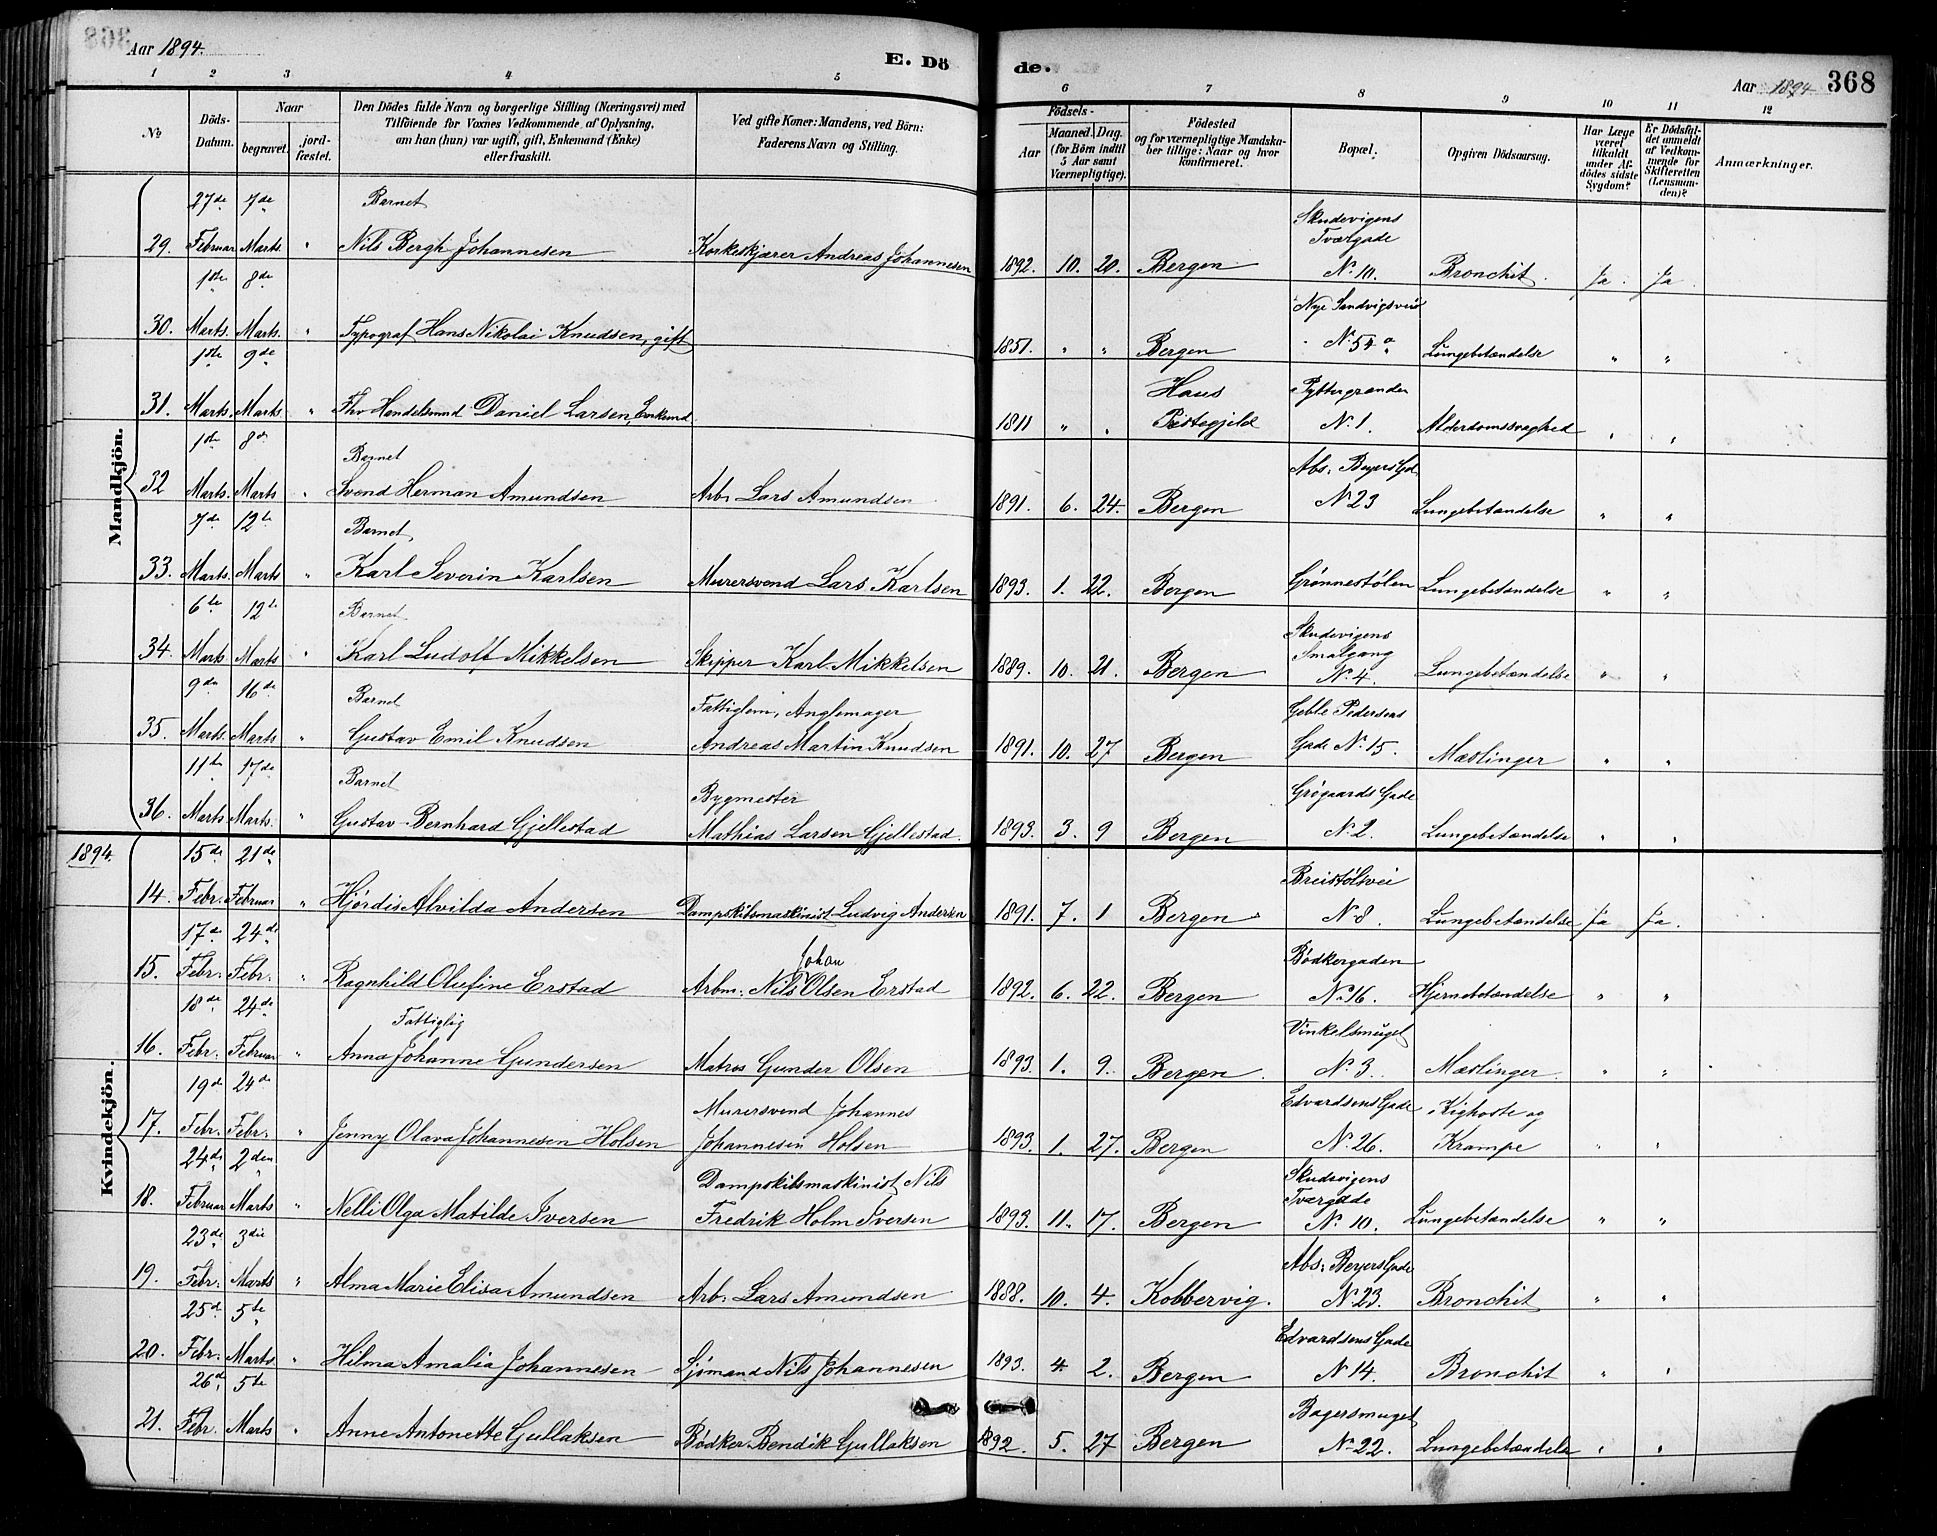 368
Aar 1894.
E. Dö
de.
Aar 1894
368
1 2 3 4 5 6 7 8 9 10 11 12
No
Döds-
Datum.
Naar
begravet.
jord-
fæstet.
Den Dödes fulde Navn og borgerlige Stilling (Næringsvei) med
Tilföiende for Voxnes Vedkommende af Oplysning,
om han (hun) var ugift, gift, Enkemand (Enke)
eller fraskilt.
Ved gifte Koner: Mandens, ved Börn:
Faderens Navn og Stilling.
Födsels-
Aar
Maaned. Dag.
(for Börn indtil
5 Aar samt
Værnepligtige).
Födested
og for værnepligtige Mandska-
ber tillige: Naar og hvor
konfirmeret.
Bopæl.
Opgiven Dödsaarsag.
Har Læge
været
tilkaldt
under Af-
dödes sidste
Sygdom?
Er Dödsfal-
det anmeldt
af Vedkom-
mende for
Skifteretten
(Lensman-
den)?
Anmærkninger.
Mandkjön.
27de 7de Barnet Skudevigens
Tværgade
29. Februar Marts " Nils Bergh Johannesen Korkeskjærer Andreas Johannesen 1892. 10. 20. Bergen No 10. Bronchit. Ja. Ja.
1ste 8de Nye Sandvigsvei
30. Marts. Marts. " Typograf Hans Nikolai Knudsen, gift 1851. " " Bergen No 54a Lungebetændelse " "
1ste 9de Haus
31. Marts. Marts " Fhv Handelsmd Daniel Larsen, Enkemd. 1811 " " Præstegjeld No 1. Alderdomssvaghed " "
1ste 8de Barnet Abs. Beyers Gd.
32 Marts. Marts " Svend Herman Amundsen Arb. Lars Amundsen 1891. 6. 24. Bergen No 23 Lungebetændelse " "
7de 12te Barnet
33. Marts. Marts " Karl Severin Karlsen Murersvend Lars Karlsen 1893. 1. 22. Bergen Grønnestølen Lungebetændelse " "
6te 12te Barnet Skudevigens
Smalgang
34. Marts Marts " Karl Ludolf Mikkelsen Skipper Karl Mikkelsen 1889. 10. 21. Bergen No 4. Lungebetændelse " "
9de 16de Barnet Fattiglem, Anglemager Geble Pedersens
35. Marts. Marts " Gustav Emil Knudsen Andreas Martin Knudsen 1891. 10. 27 Bergen Gade No 15. Mæslinger " "
11te 17de Barnet Bygmester Grøgaards Gade
36. Marts Marts. " Gustav Bernhard Gjellestad Mathias Larsen Gjellestad. 1893. 3. 9 Bergen No 2. Lungebetændelse " "
1894.
Kvindekjön.
15de 21de Breistølsvei
14. Febr. Februar " Hjørdis Alvilda Andersen Dampskibsmaskinist Ludvig Andersen 1891. 7. 1 Bergen No 8. Lungebetændelse Ja Ja.
17de 24de Johan Bødkergaden
15. Febr. Febr. " Ragnhild Olufine Erstad Arbm. Nils Olsen Erstad 1892. 6. 22. Bergen No 16. Hjernebetændelse " "
18de 24de Fattiglig Vinkelsmuget
16. Febr. Februar " Anna Johanne Gundersen Matros Gunder Olsen 1893. 1. 9. Bergen. No 3. Mæslinger. " "
19de 24de Murersvend Johannes Edvardsens Gade Kighoste og
17. Febr. Febr. " Jenny Olava Johannesen Holsen Johannesen Holsen 1893. 1. 27. Bergen No 26. Krampe " "
24de 2den Dampskibsmaskinist Nils Skudevigens
Tværgade
18. Februar Marts " Nelli Olga Matilde Iversen Fredrik Holm Iversen 1893. 11. 17. Bergen No 10. Lungebetændelse " "
23de 3die Abs. Beyers Gade
19. Febr. Marts " Alma Marie Elisa Amundsen Arb. Lars Amundsen 1888. 10. 4. Kobbervig. No 23. Bronchit " "
25de 5te Edvardsens Gade
20. Febr. Marts. " Hilma Amalia Johannesen Sjømand Nils Johannesen 1893. 4. 2. Bergen No 14. Bronchit " "
26de 5te Bagersmuget
21. Febr. Marts " Anne Antonette Gullaksen Bødker Bendik Gullaksen 1892. 5. 27 Bergen No 22. Lungebetændelse " "